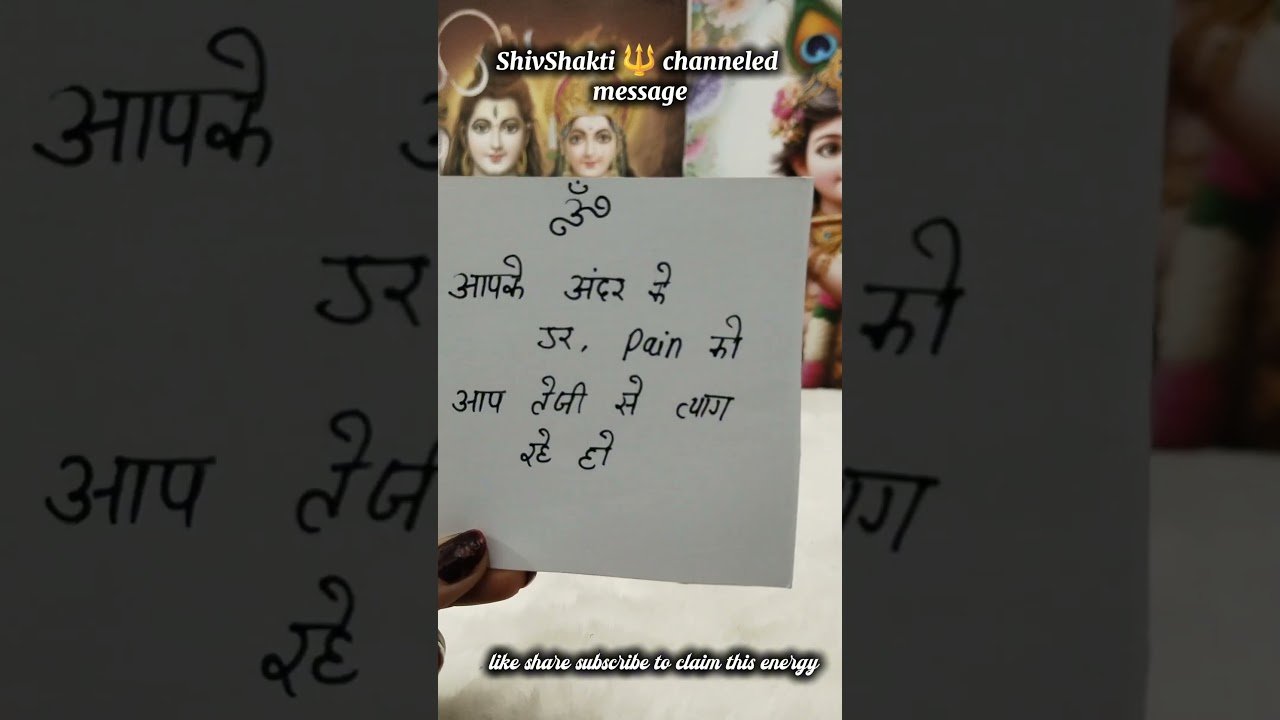 ShivShakti 🔱 channeled
message
ॐ
आपके अंदर के
डर, Pain को
आप तेजी से त्याग
रहे हो
like share subscribe to claim this energy